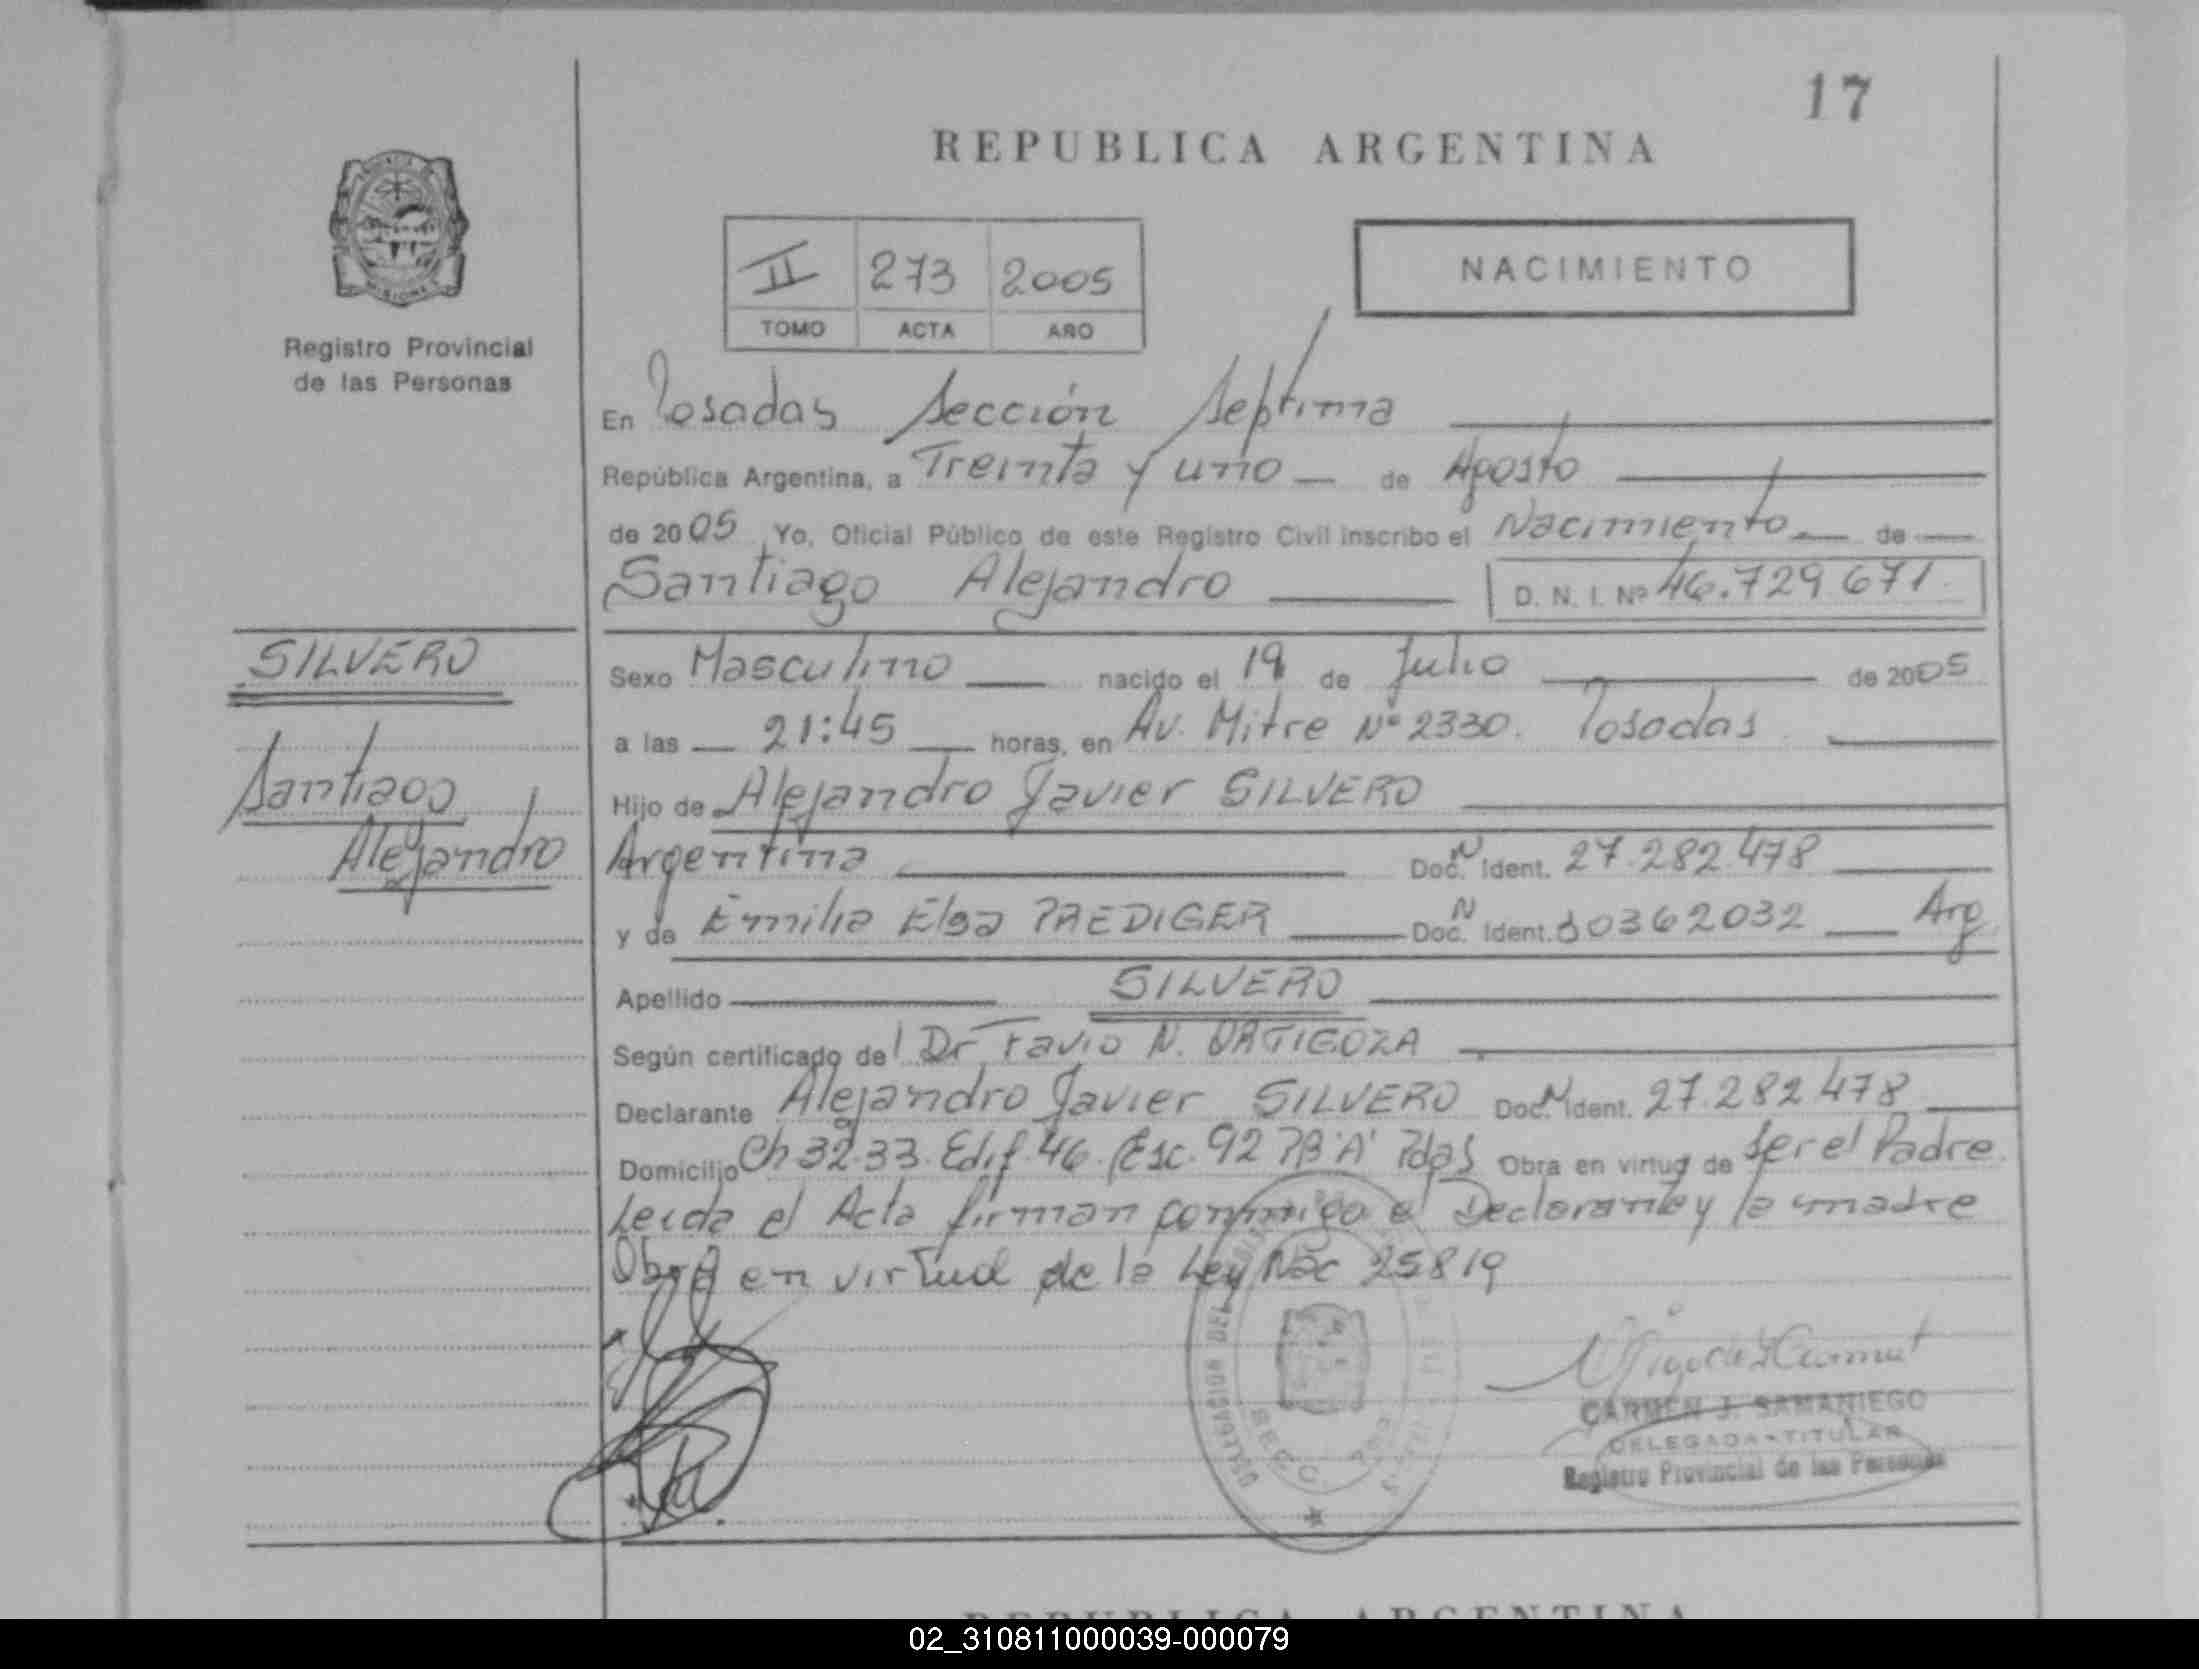 17
REPUBLICA ARGENTINA
MISIONES
Registro Provincial
de las Personas
II 273 2005
TOMO ACTA AÑO
NACIMIENTO
En Posadas Sección Septima
República Argentina, a Treinta y uno de Agosto
de 2005 Yo, Oficial Público de este Registro Civil inscribo el Nacimiento de
Santiago Alejandro D. N. I. Nº 46.729 671
SILVERO
Santiago
Alejandro
Sexo Masculino nacido el 19 de Julio de 2005
a las 21:45 horas, en Av. Mitre Nº 2330. Posadas
Hijo de Alejandro Javier SILVERO
Argentina Doc. N Ident. 27.282.478
y de Emilia Elsa PREDIGER Doc. N Ident. 30362032 Arg
Apellido SILVERO
Según certificado del Dr Favio N. ORTIGOZA
Declarante Alejandro Javier SILVERO Doc. N Ident. 27.282 478
Domicilio Ch 32-33. Edif 46. Esc. 92 PB 'A' Pdas Obra en virtud de Ser el Padre.
Leida el Acta firman conmigo el Declarante y la madre
Obra en virtud de la Ley Nac 25819
DELEGACION DEL
SECC.
CARMEN J. SAMANIEGO
DELEGADA - TITULAR
Registro Provincial de las Personas
REPUBLICA ARGENTINA
02_310811000039-000079